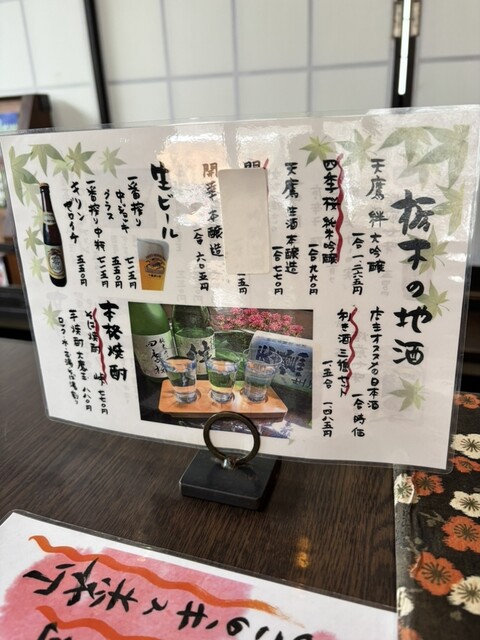 栃木の地酒
天鷹 絆 大吟醸
一合 一、二六五円
四季桜 純米吟醸
一合 九九〇円
天鷹 生酒 本醸造
一合 七七〇円
開
五円
開華 本醸造
一合 六〇五円
生ビール
一番搾り
中ジョッキ 七一五円
グラス 五五〇円
一番搾り 中瓶 七一五円
キリン ゼロイチ 五五〇円
店主オススメの日本酒
一合 時価
利き酒三種セット
一、五合 一、四八五円
本格焼酎
そば焼酎 峠 七七〇円
芋焼酎 大魔王 八八〇円
ロック・水・お湯・そば湯割り
四季桜